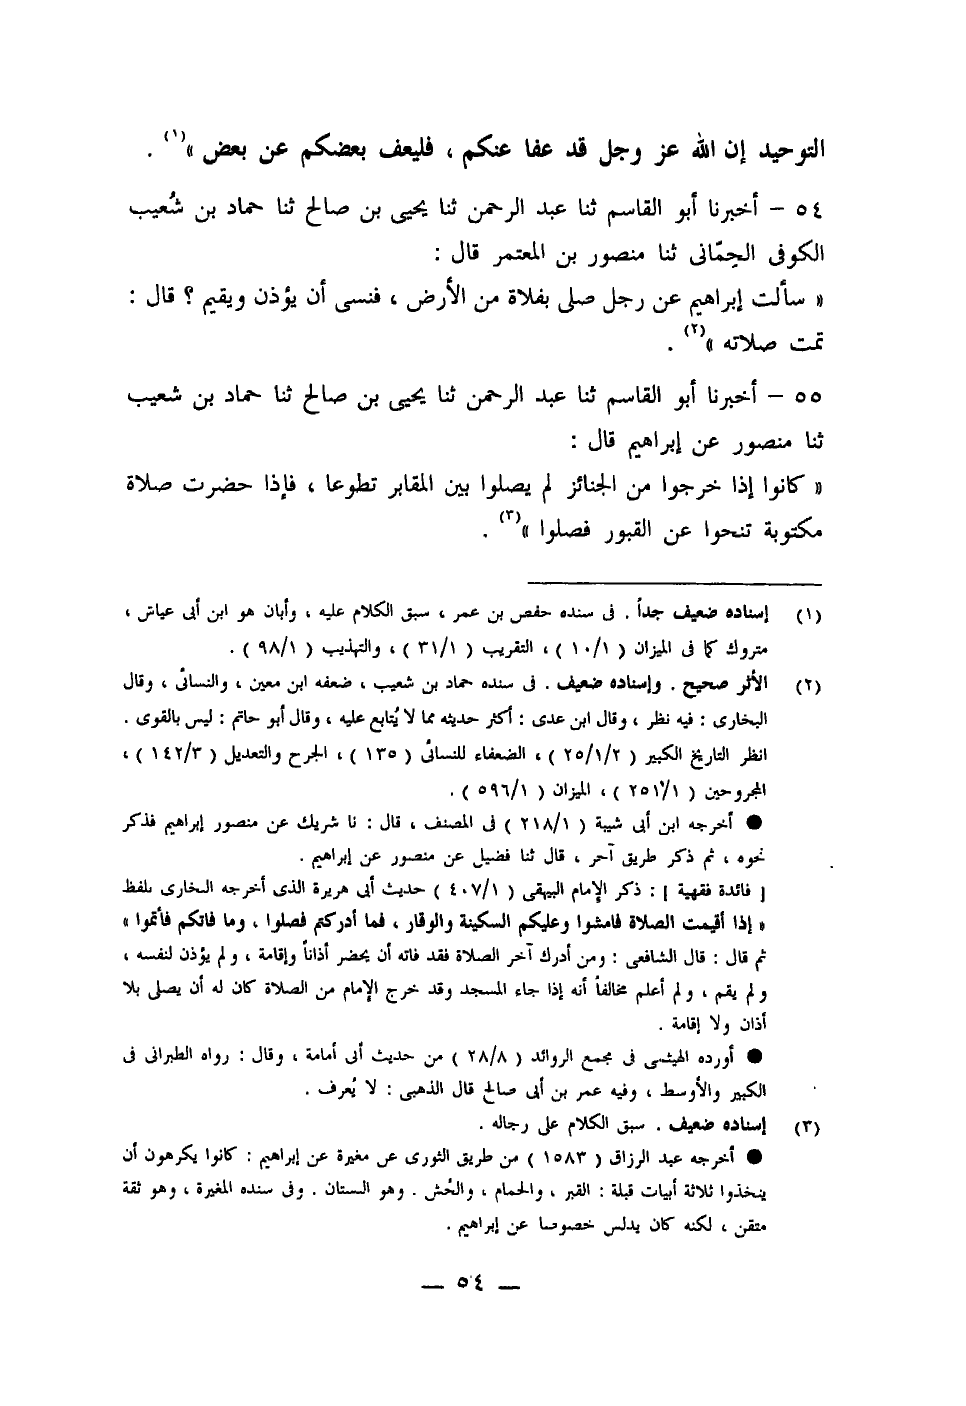 التوحيد إن الله عز وجل قد عفا عنكم ، فليعف بعضكم عن بعض »(١) .
٥٤ – أخبرنا أبو القاسم ثنا عبد الرحمن ثنا يحيى بن صالح ثنا حماد بن شُعيب
الكوفى الحِمّانى ثنا منصور بن المعتمر قال :
« سألت إبراهيم عن رجل صلى بفلاة من الأرض ، فنسى أن يؤذن ويقيم ؟ قال :
تمت صلاته »(٢) .
٥٥ – أخبرنا أبو القاسم ثنا عبد الرحمن ثنا يحيى بن صالح ثنا حماد بن شعيب
ثنا منصور عن إبراهيم قال :
« كانوا إذا خرجوا من الجنائز لم يصلوا بين المقابر تطوعا ، فإذا حضرت صلاة
مكتوبة تنحوا عن القبور فصلوا »(٣) .
(١) إسناده ضعيف جداً . فى سنده حفص بن عمر ، سبق الكلام عليه ، وأبان هو ابن أبى عياش ،
متروك كما فى الميزان ( ١٠/١ ) ، التقريب ( ٣١/١ ) ، والتهذيب ( ٩٨/١ ) .
(٢) الأثر صحيح . وإسناده ضعيف . فى سنده حماد بن شعيب ، ضعفه ابن معين ، والنسائى ، وقال
البخارى : فيه نظر ، وقال ابن عدى : أكثر حديثه مما لا يُتابع عليه ، وقال أبو حاتم : ليس بالقوى .
انظر التاريخ الكبير ( ٢٥/١/٢ ) ، الضعفاء للنسائى ( ١٣٥ ) ، الجرح والتعديل ( ١٤٢/٣ ) ،
المجروحين ( ٢٥١/١ ) ، الميزان ( ٥٩٦/١ ) .
● أخرجه ابن أبى شيبة ( ٢١٨/١ ) فى المصنف ، قال : نا شريك عن منصور إبراهيم فذكر
نحوه ، ثم ذكر طريق آخر ، قال ثنا فضيل عن منصور عن إبراهيم .
[ فائدة فقهية ] : ذكر الإمام البيهقى ( ٤٠٧/١ ) حديث أبى هريرة الذى أخرجه البخارى بلفظ
« إذا أقيمت الصلاة فامشوا وعليكم السكينة والوقار ، فما أدركتم فصلوا ، وما فاتكم فأتموا »
ثم قال : قال الشافعى : ومن أدرك آخر الصلاة فقد فاته أن يحضر أذاناً وإقامة ، ولم يؤذن لنفسه ،
ولم يقم ، ولم أعلم مخالفاً أنه إذا جاء المسجد وقد خرج الإمام من الصلاة كان له أن يصلى بلا
أذان ولا إقامة .
● أورده الهيثمى فى مجمع الزوائد ( ٢٨/٨ ) من حديث أبى أمامة ، وقال : رواه الطبرانى فى
الكبير والأوسط ، وفيه عمر بن أبى صالح قال الذهبى : لا يُعرف .
(٣) إسناده ضعيف . سبق الكلام على رجاله .
● أخرجه عبد الرزاق ( ١٥٨٣ ) من طريق الثورى عن مغيرة عن إبراهيم : كانوا يكرهون أن
يتخذوا ثلاثة أبيات قبلة : القبر ، والحمام ، والحُش . وهو البستان . وفى سنده المغيرة ، وهو ثقة
متقن ، لكنه كان يدلس خصوصا عن إبراهيم .
— ٥٤ —